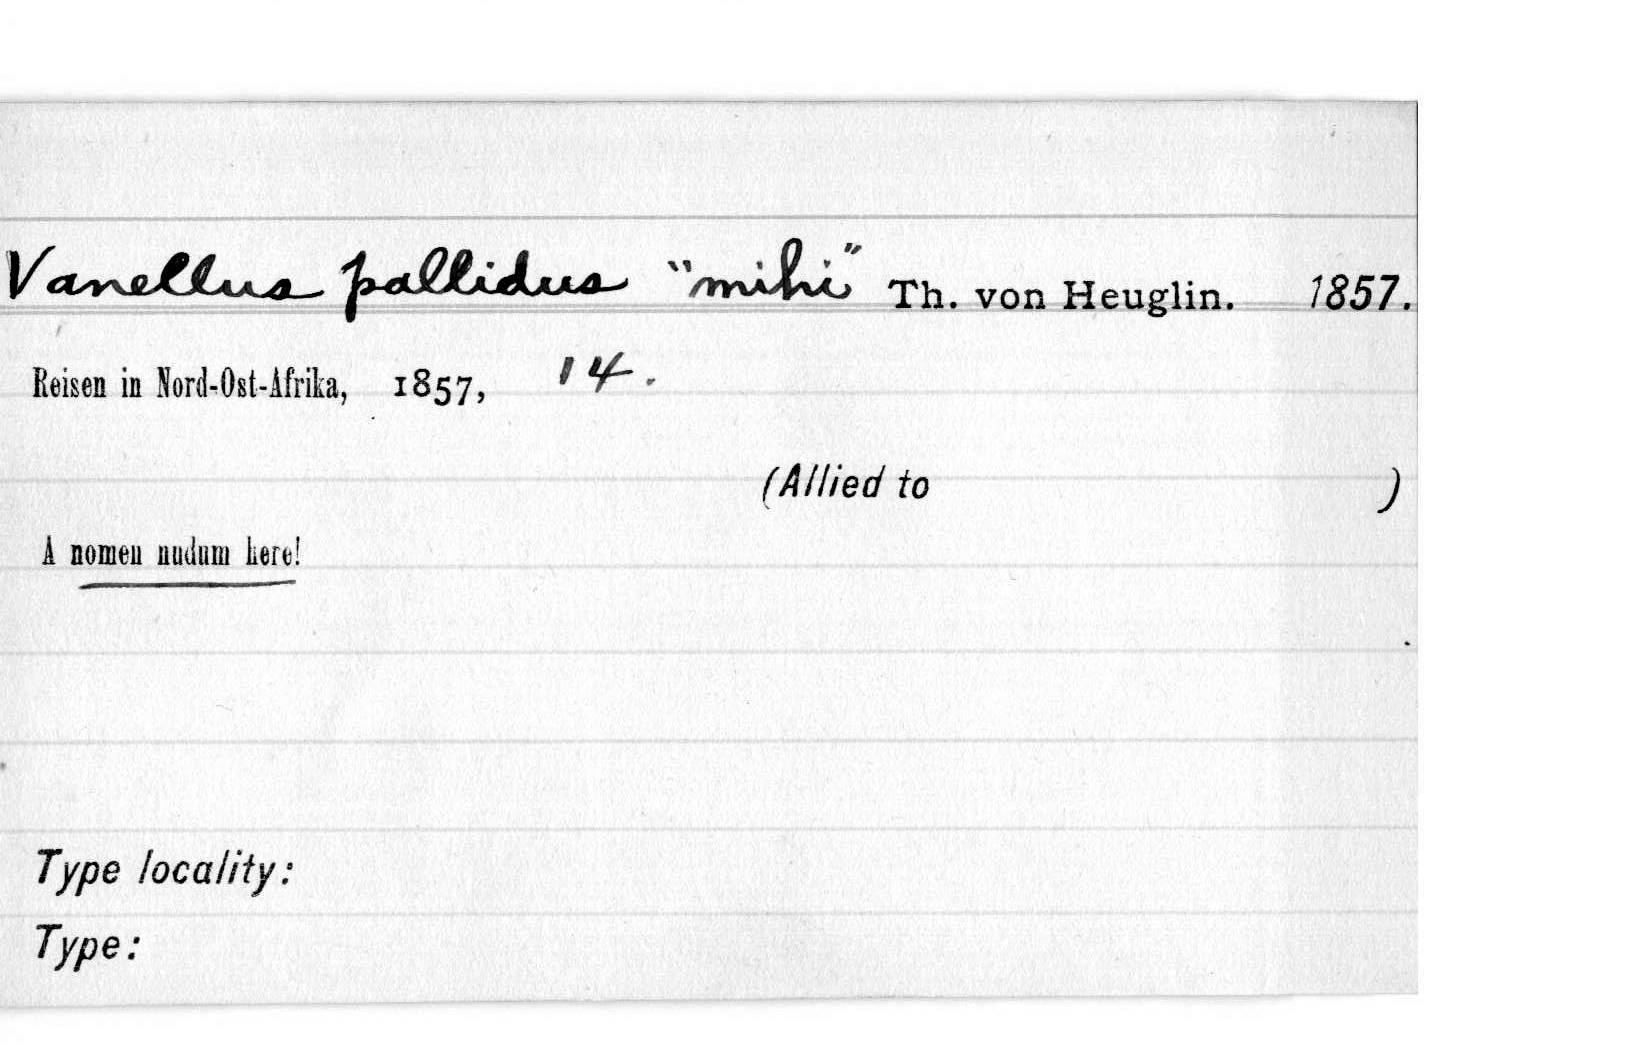 Vanellus pallidus "mihi" Th. von Heuglin. 1857.
Reisen in Nord-Ost-Afrika, 1857, 14.
(Allied to )
A nomen nudum here!
Type locality:
Type: